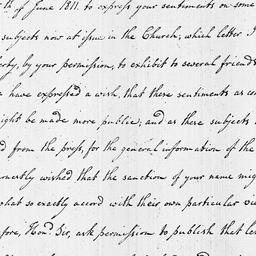 th of June 1811. to express your sentiments on some
subjects now at issue in the Church; which letter I
erty, by your permission, to exhibit to several friends
e have expressed a wish, that these sentiments as con
ight be made more public; and as these subjects
d from the press, for the general information of the
rnestly wished that the sanction of your name mig
what so exactly accord with their own particular vie
fore, Hond. Sir, ask permission to publish that let